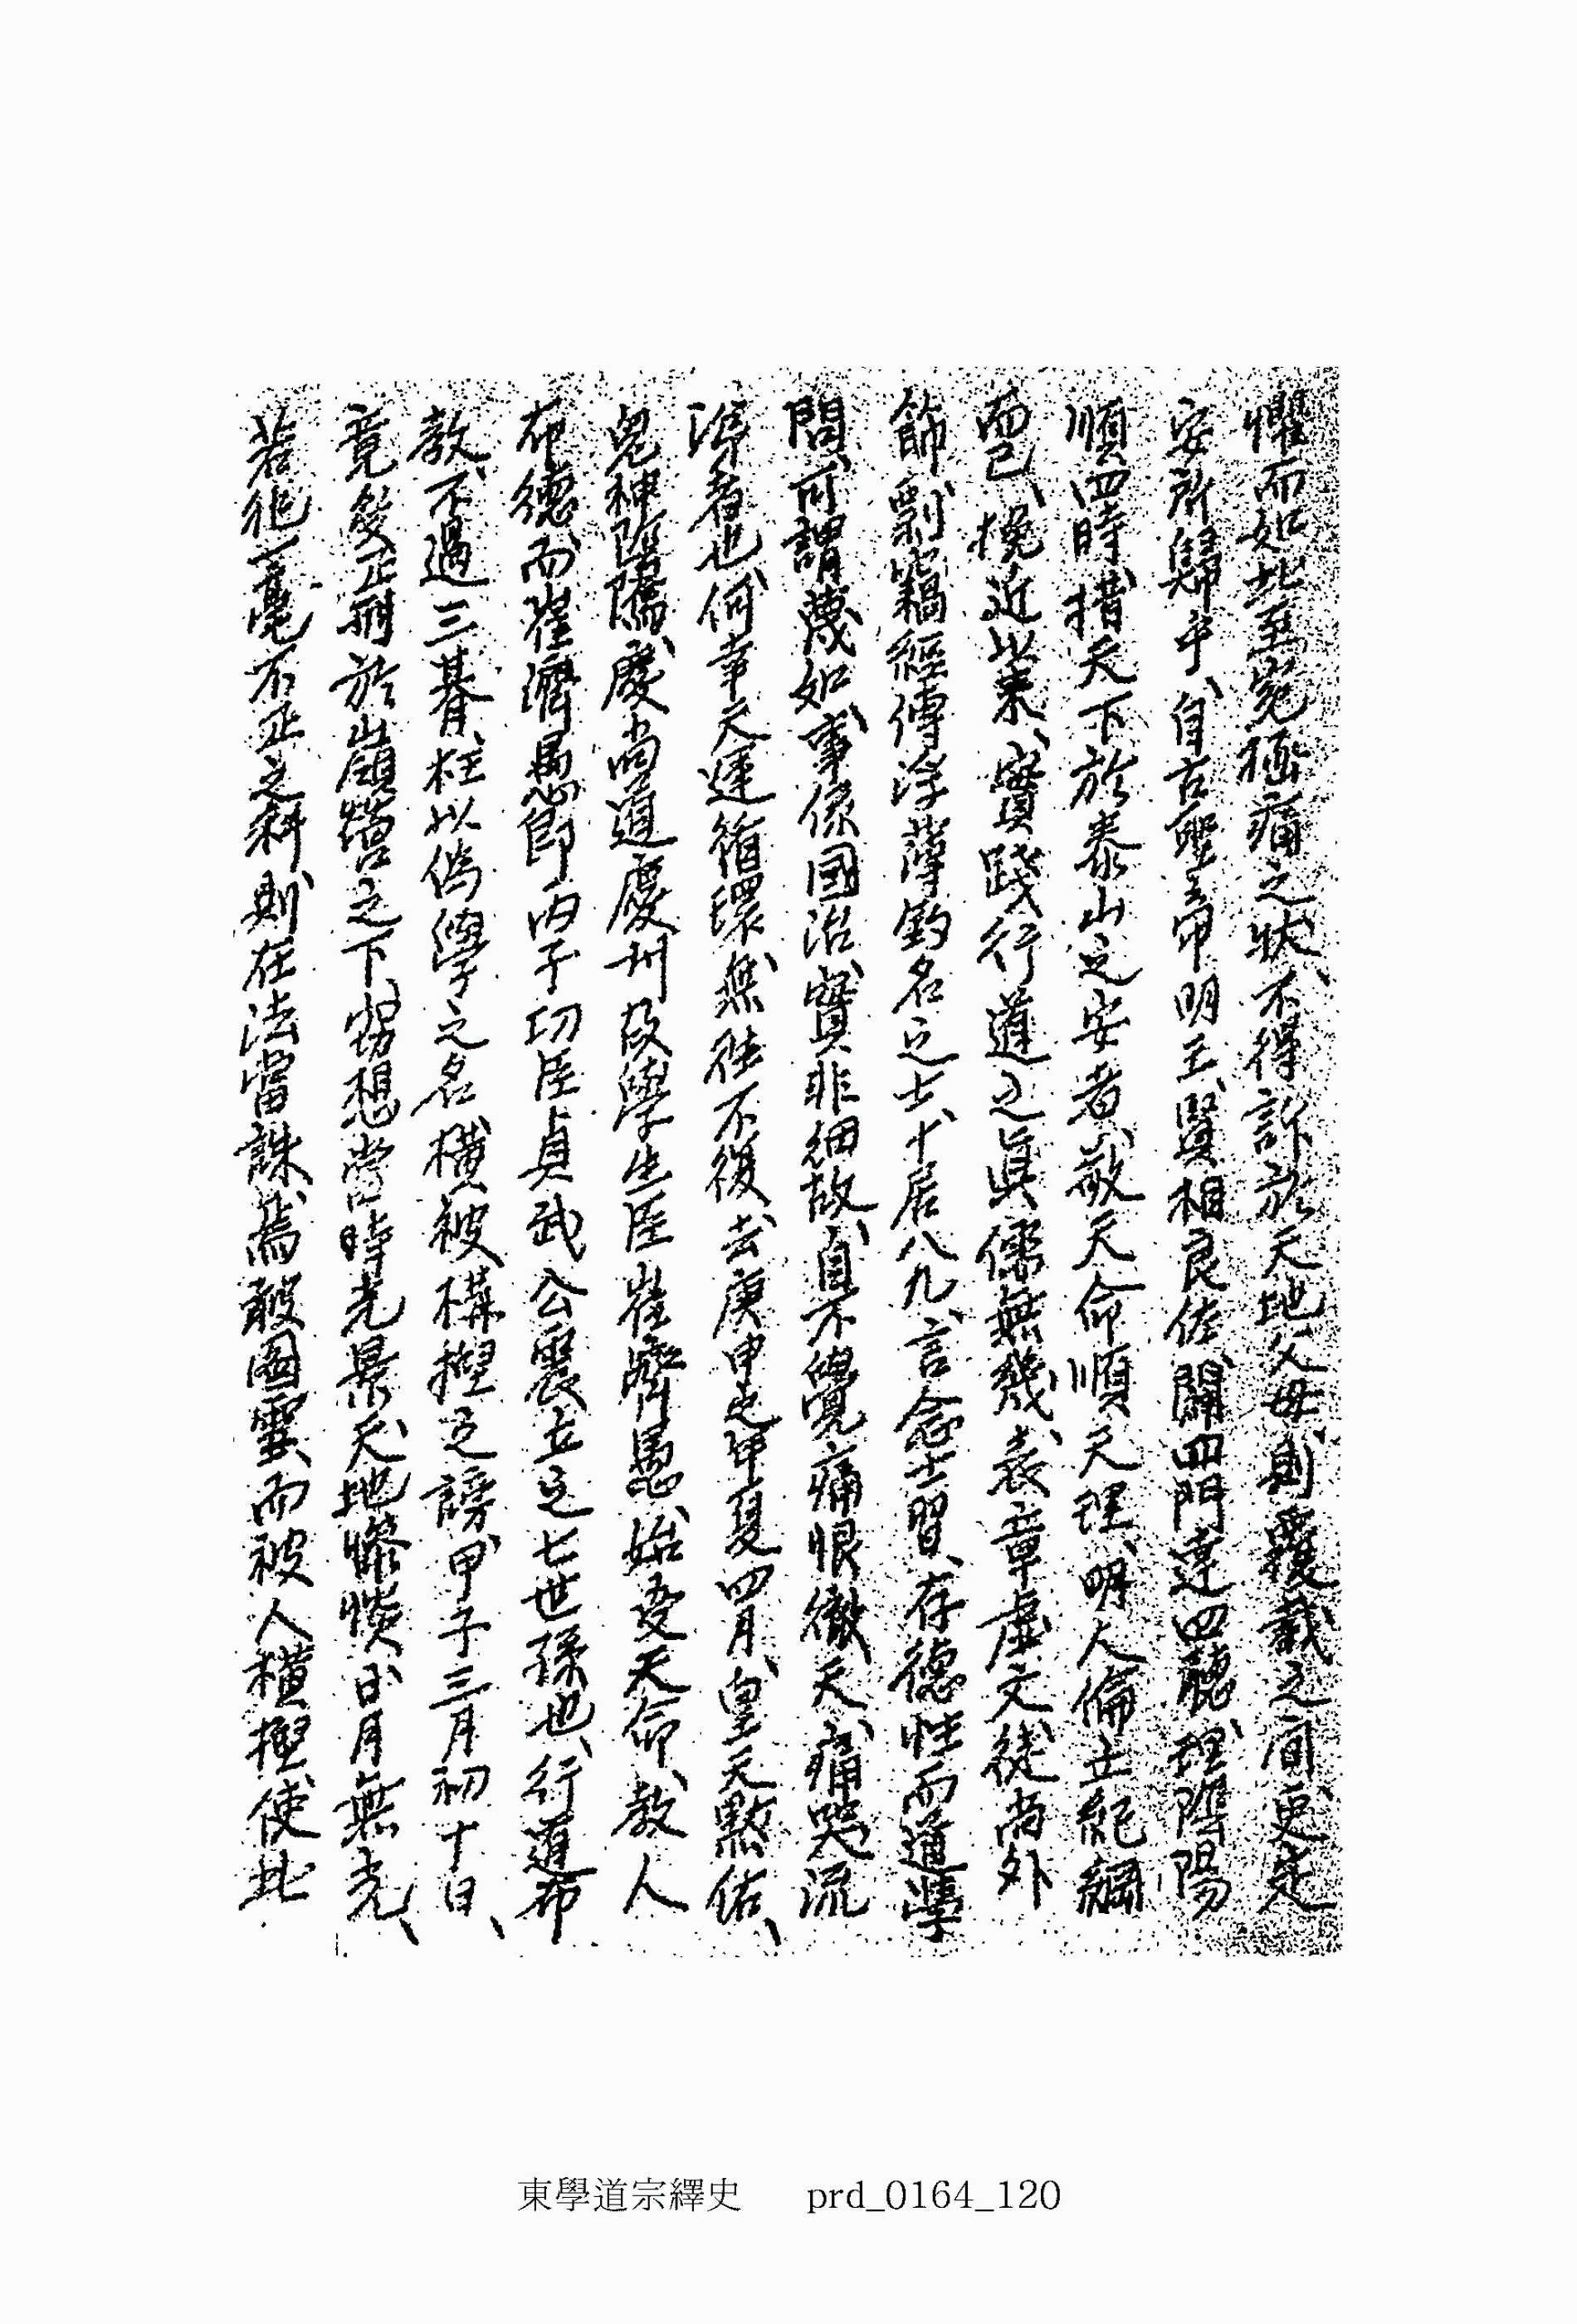 懼而如此至寃極痛之狀、不得訴於天地父母、則覆載之間、更定
安所歸乎、自古聖帝明王、賢相良佐、闢四門達四聰、理陰陽
順四時、措天下於泰山之安者、敬天命順天理、明人倫立紀綱
而已、挽近以來、實踐行道之眞儒無幾、表章虛文、徒尚外
飾、剽竊經傳浮薄釣名之士、十居八九、言念士習、存德性而道學
問、可謂蔑如、事係國治、實非細故、自不覺痛恨徹天、痛哭流
涕者也、何幸天運循環、無往不復、去庚申之年夏四月、皇天黙佑、
鬼神陰騭、慶尚道慶州故學生臣崔齊愚、始受天命、敎人
布德、而崔濟愚卽丙子功臣貞武公震立之七世孫也、行道布
敎、不過三朞、枉以僞學之名、橫被構捏之謗、甲子三月初十日、
竟受正刑於嶺營之下、窃想當時光景、天地慘惔、日月無光、
若他一毫不正之科、則在法當誅、焉敢圖雪、而被人橫捏、使此
東學道宗繹史 prd_0164_120